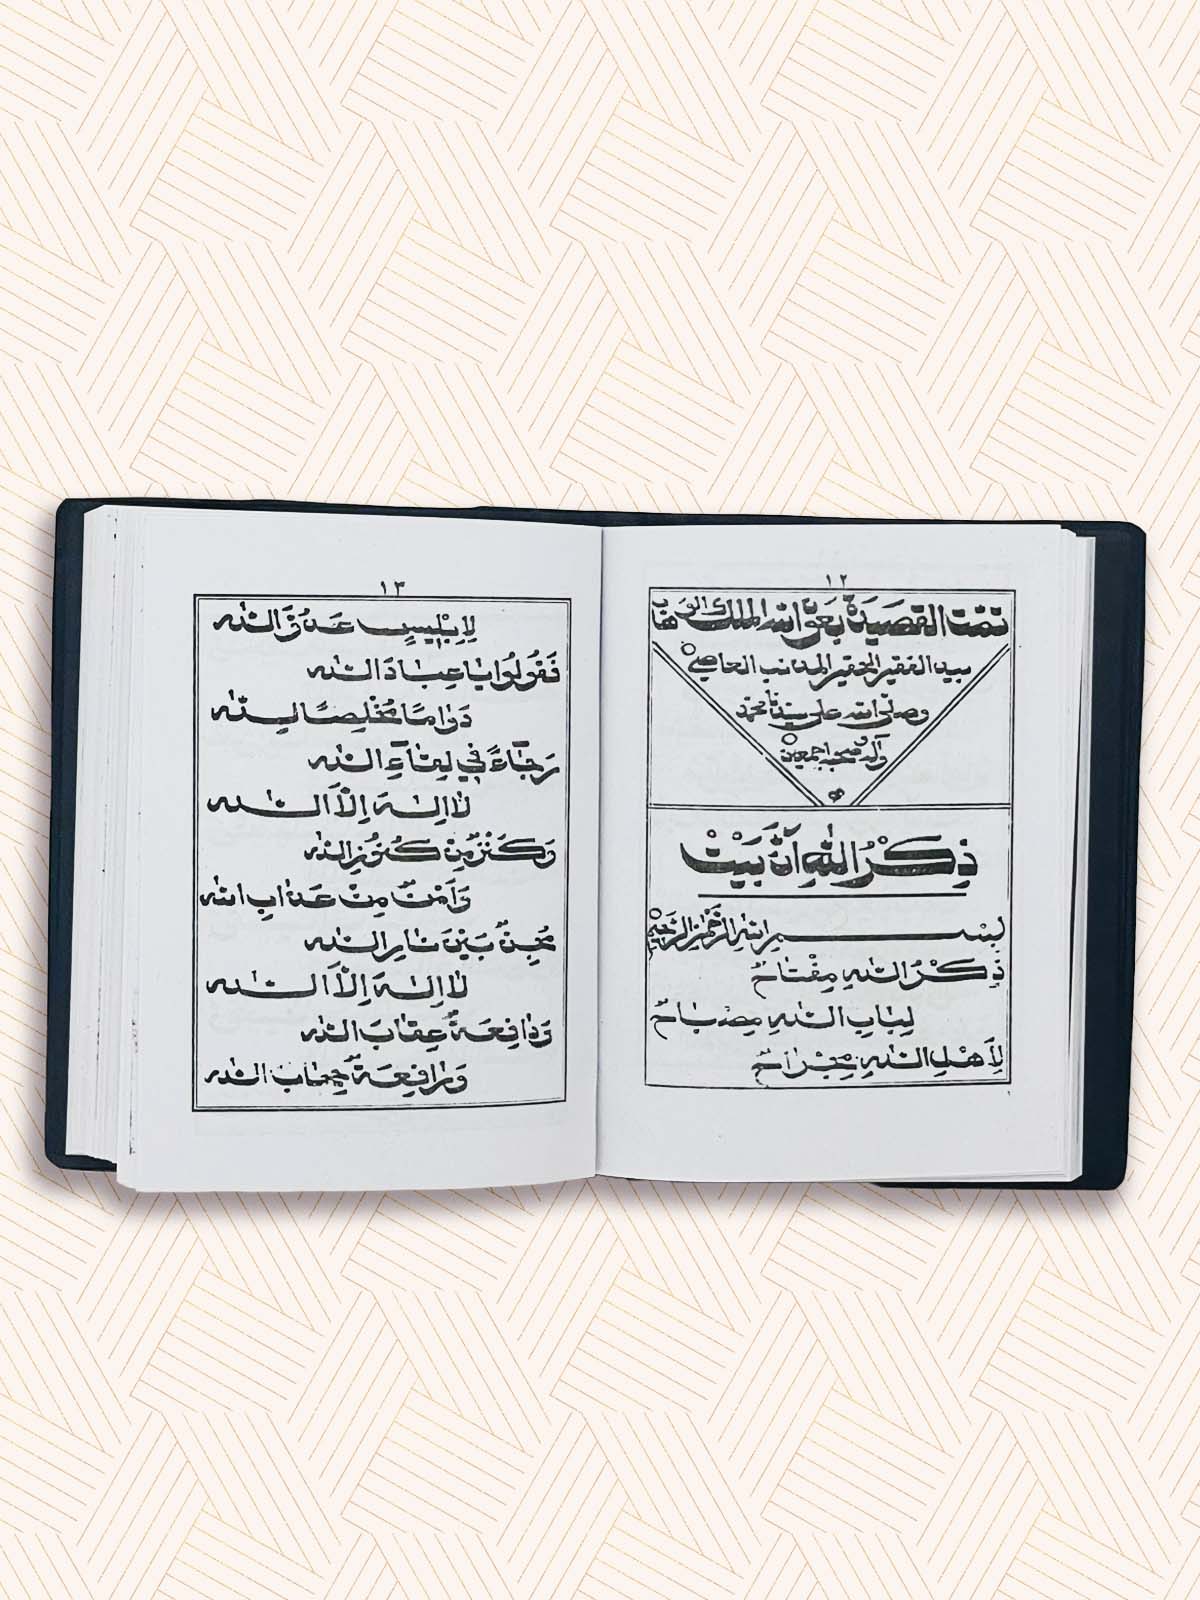 ١٢
تمت القصيدة بعون الله الملك الوهاب
بيد الفقير الحقير المذنب العاصي
وصلى الله على سيدنا محمد
وآله وصحبه اجمعين
ذِكْرُ اللهِ آنَّ بَيْتْ
بِسْمِ اللهِ الرَّحْمٰنِ الرَّحِيْمِ
ذِكْرُ اللهِ مِفْتَاحٌ
لِبَابِ اللهِ مِصْبَاحٌ
لِأَهْلِ اللهِ مِجْرَاحٌ
١٣
لِإِبْلِيسٍ عَدُوِّ اللهِ
فَقُولُوا يَا عِبَادَ اللهِ
دَوَامًا مُخْلِصًا لِلّٰهِ
رَجَاءً فِي لِقَاءِ اللهِ
لَا إِلٰهَ إِلَّا اللهِ
وَكَنْزٌ مِنْ كُنُوزِ اللهِ
وَأَمْنٌ مِنْ عَذَابِ اللهِ
مِجَنٌّ بَيْنَ نَارِ اللهِ
لَا إِلٰهَ إِلَّا اللهِ
وَدَافِعَةٌ عِقَابَ اللهِ
وَرَافِعَةٌ حِجَابَ اللهِ